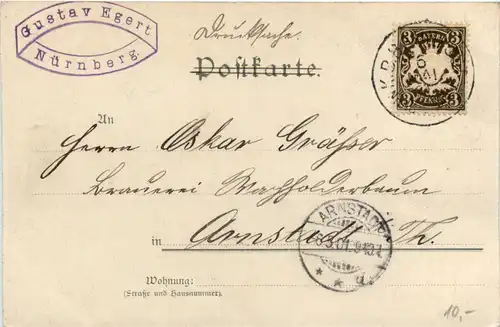 Gustav Egert
Nürnberg
Drucksache.
Postkarte.
BAYERN
3 3
PFENNIG
An
Herrn Oskar Gräfser
Brauerei Wachholderbaum
in Arnstadt Th.
ARNSTADT
Wohnung:
(Straße und Hausnummer).
10,-